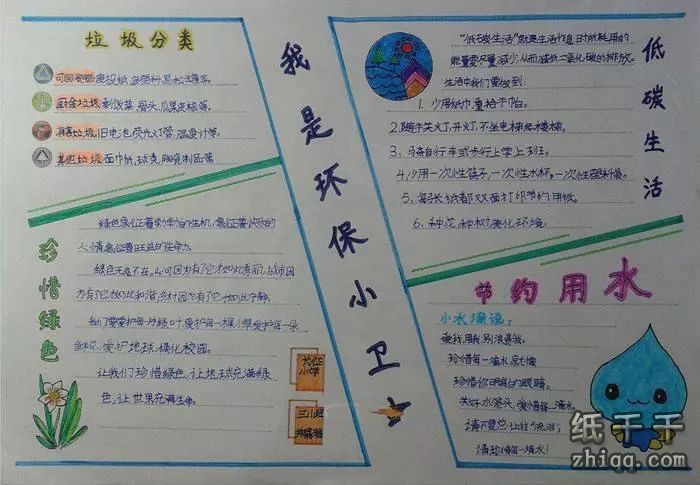 垃圾分类
可回收物:废报纸、
厨余垃圾:剩饭菜、骨头、瓜果皮核等。
有害垃圾:旧电池、荧光灯管、温度计等。
其他垃圾:面巾纸、
珍惜绿色
绿色象征着勃勃的生机,象征着快乐的
心情,象征着旺盛的生命力。
绿色无处不在。山因为有了它,
为有了它,
我们要爱护每一片绿叶,爱护每一棵小草,爱护每一朵
鲜花,爱护地球,绿化校园。
让我们珍惜绿色,让地球充满绿
色,让世界充满生命。
长征
小学
三(1)班
我是环保小卫士
低碳生活
"低碳生活"就是生活作息时所耗用的
能量要尽量减少,从而减低二氧化碳的排放。
生活中我们要做到:
1、少用纸巾,重拾手帕。
2、随手关灯、开灯,不坐电梯爬楼梯。
3、骑自行车或步行上学上班。
4、少用一次性筷子、一次性水杯、一次性塑料袋。
5、每张纸都双面打印节约用纸。
6、种花、种树美化环境。
节约用水
小水滴说:
爱我用我别浪费我。
珍惜每一滴水,
珍惜你明亮的眼睛。
关好水龙头,爱惜每一滴水。
请不要忘让我"流泪",
请珍惜每一滴水!
纸千千
zhiqq.com